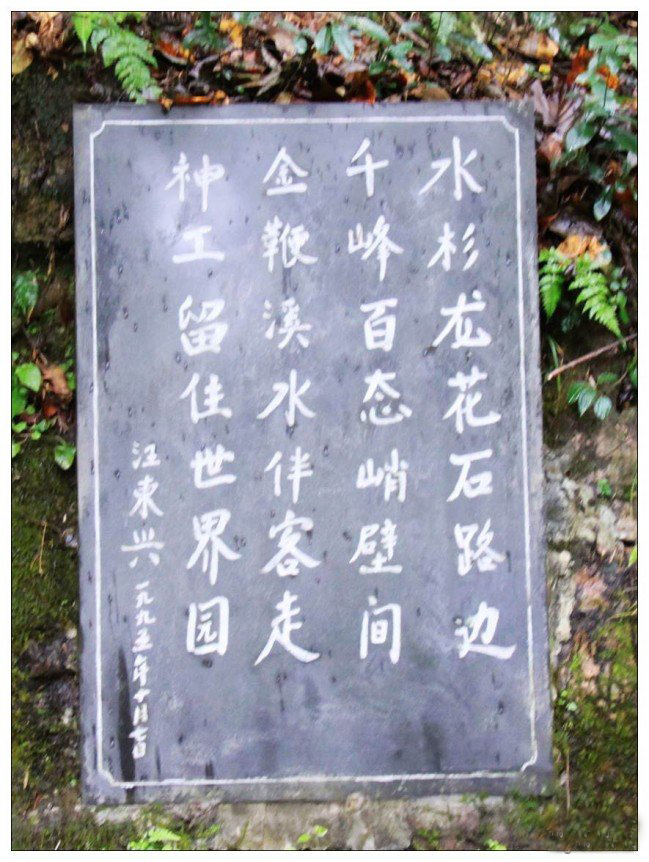 水杉龙花石路边
千峰百态峭壁间
金鞭溪水伴客走
神工留住世界园
汪東兴 一九九五年十月七日